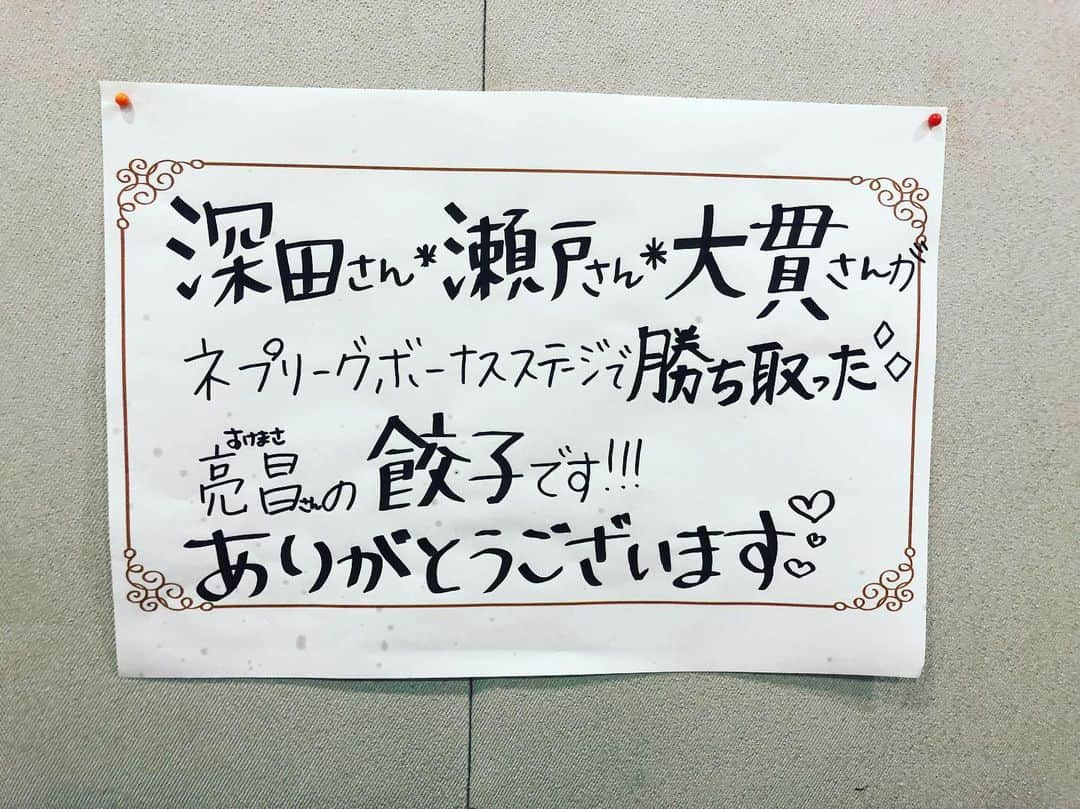 深田さん*瀬戸さん*大貫さんが
ネプリーグボーナスステージで勝ち取った
すけまさ
亮昌さんの餃子です!!!
ありがとうございます